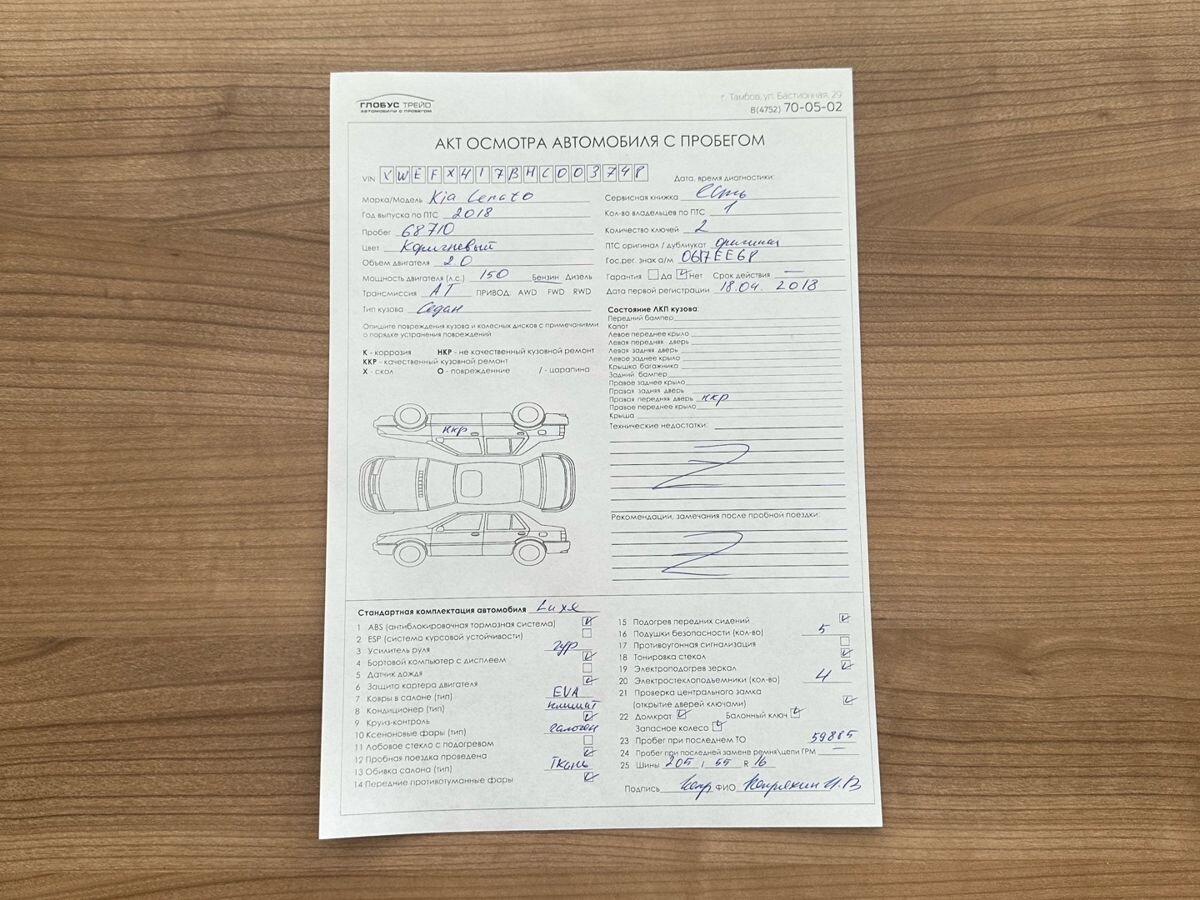 ГЛОБУС ТРЕЙД
АВТОМОБИЛИ С ПРОБЕГОМ
г. Тамбов, ул. Бастионная, 29
8(4752) 70-05-02
АКТ ОСМОТРА АВТОМОБИЛЯ С ПРОБЕГОМ
VIN XWEFX417BHC003748
Дата, время диагностики:
Марка/Модель Kia Cerato
Год выпуска по ПТС 2018
Пробег 68710
Цвет Коричневый
Объем двигателя 2.0
Мощность двигателя (л.с.) 150 Бензин Дизель
Трансмиссия АТ ПРИВОД: AWD FWD RWD
Тип кузова Седан
Сервисная книжка есть
Кол-во владельцев по ПТС 1
Количество ключей 2
ПТС оригинал / дубликат оригинал
Гос.рег. знак а/м 0617ЕЕ68
Гарантия Да Нет Срок действия —
Дата первой регистрации 18.04. 2018
Опишите повреждения кузова и колесных дисков с примечаниями
о порядке устранения повреждений
К - коррозия НКР - не качественный кузовной ремонт
ККР - качественный кузовной ремонт
Х - скол О - повреждение / - царапина
ккр
Состояние ЛКП кузова:
Передний бампер
Капот
Левое переднее крыло
Левая передняя дверь
Левая задняя дверь
Левое заднее крыло
Крышка багажника
Задний бампер
Правое заднее крыло
Правая задняя дверь
Правая передняя дверь ккр
Правое переднее крыло
Крыша
Технические недостатки:
Z
Рекомендации, замечания после пробной поездки:
Z
Стандартная комплектация автомобиля Luxe
1 ABS (антиблокировочная тормозная система)
2 ESP (система курсовой устойчивости)
3 Усилитель руля гур
4 Бортовой компьютер с дисплеем
5 Датчик дождя
6 Защита картера двигателя
7 Ковры в салоне (тип) EVA
8 Кондиционер (тип) климат
9 Круиз-контроль
10 Ксеноновые фары (тип) галоген
11 Лобовое стекло с подогревом
12 Пробная поездка проведена
13 Обивка салона (тип) Ткань
14 Передние противотуманные фары
15 Подогрев передних сидений
16 Подушки безопасности (кол-во) 5
17 Противоугонная сигнализация
18 Тонировка стекол
19 Электроподогрев зеркал
20 Электростеклоподъемники (кол-во) 4
21 Проверка центрального замка
(открытие дверей ключами)
22 Домкрат Балонный ключ
Запасное колесо
23 Пробег при последнем ТО 59885
24 Пробег при последней замене ремня\цепи ГРМ —
25 Шины 205 / 55 R 16
Подпись ФИО